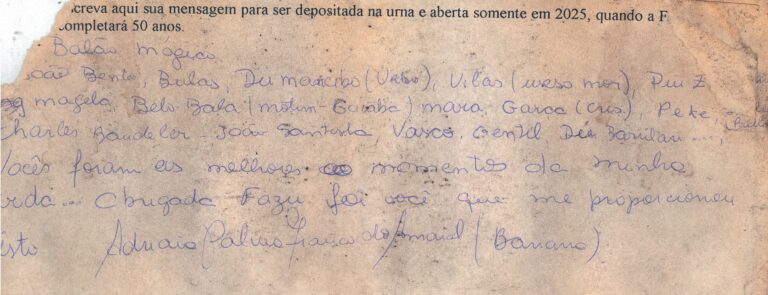 creva aqui sua mensagem para ser depositada na urna e aberta somente em 2025, quando a F
completará 50 anos.
Balão magico
João Bento, Bulas, Du (Urso), Vilas (urso mor), Luiz
magela, Belo Bala (motim- Guimba) mara Garça (cris.), Peke,
Charles Baudeler - João Santista, Vasco, Gentil, Du ...,
Vocês foram os melhores momentos da minha
vida... Obrigada Fazu foi você que me proporcionou
isto Franco do Amaral (Banana)